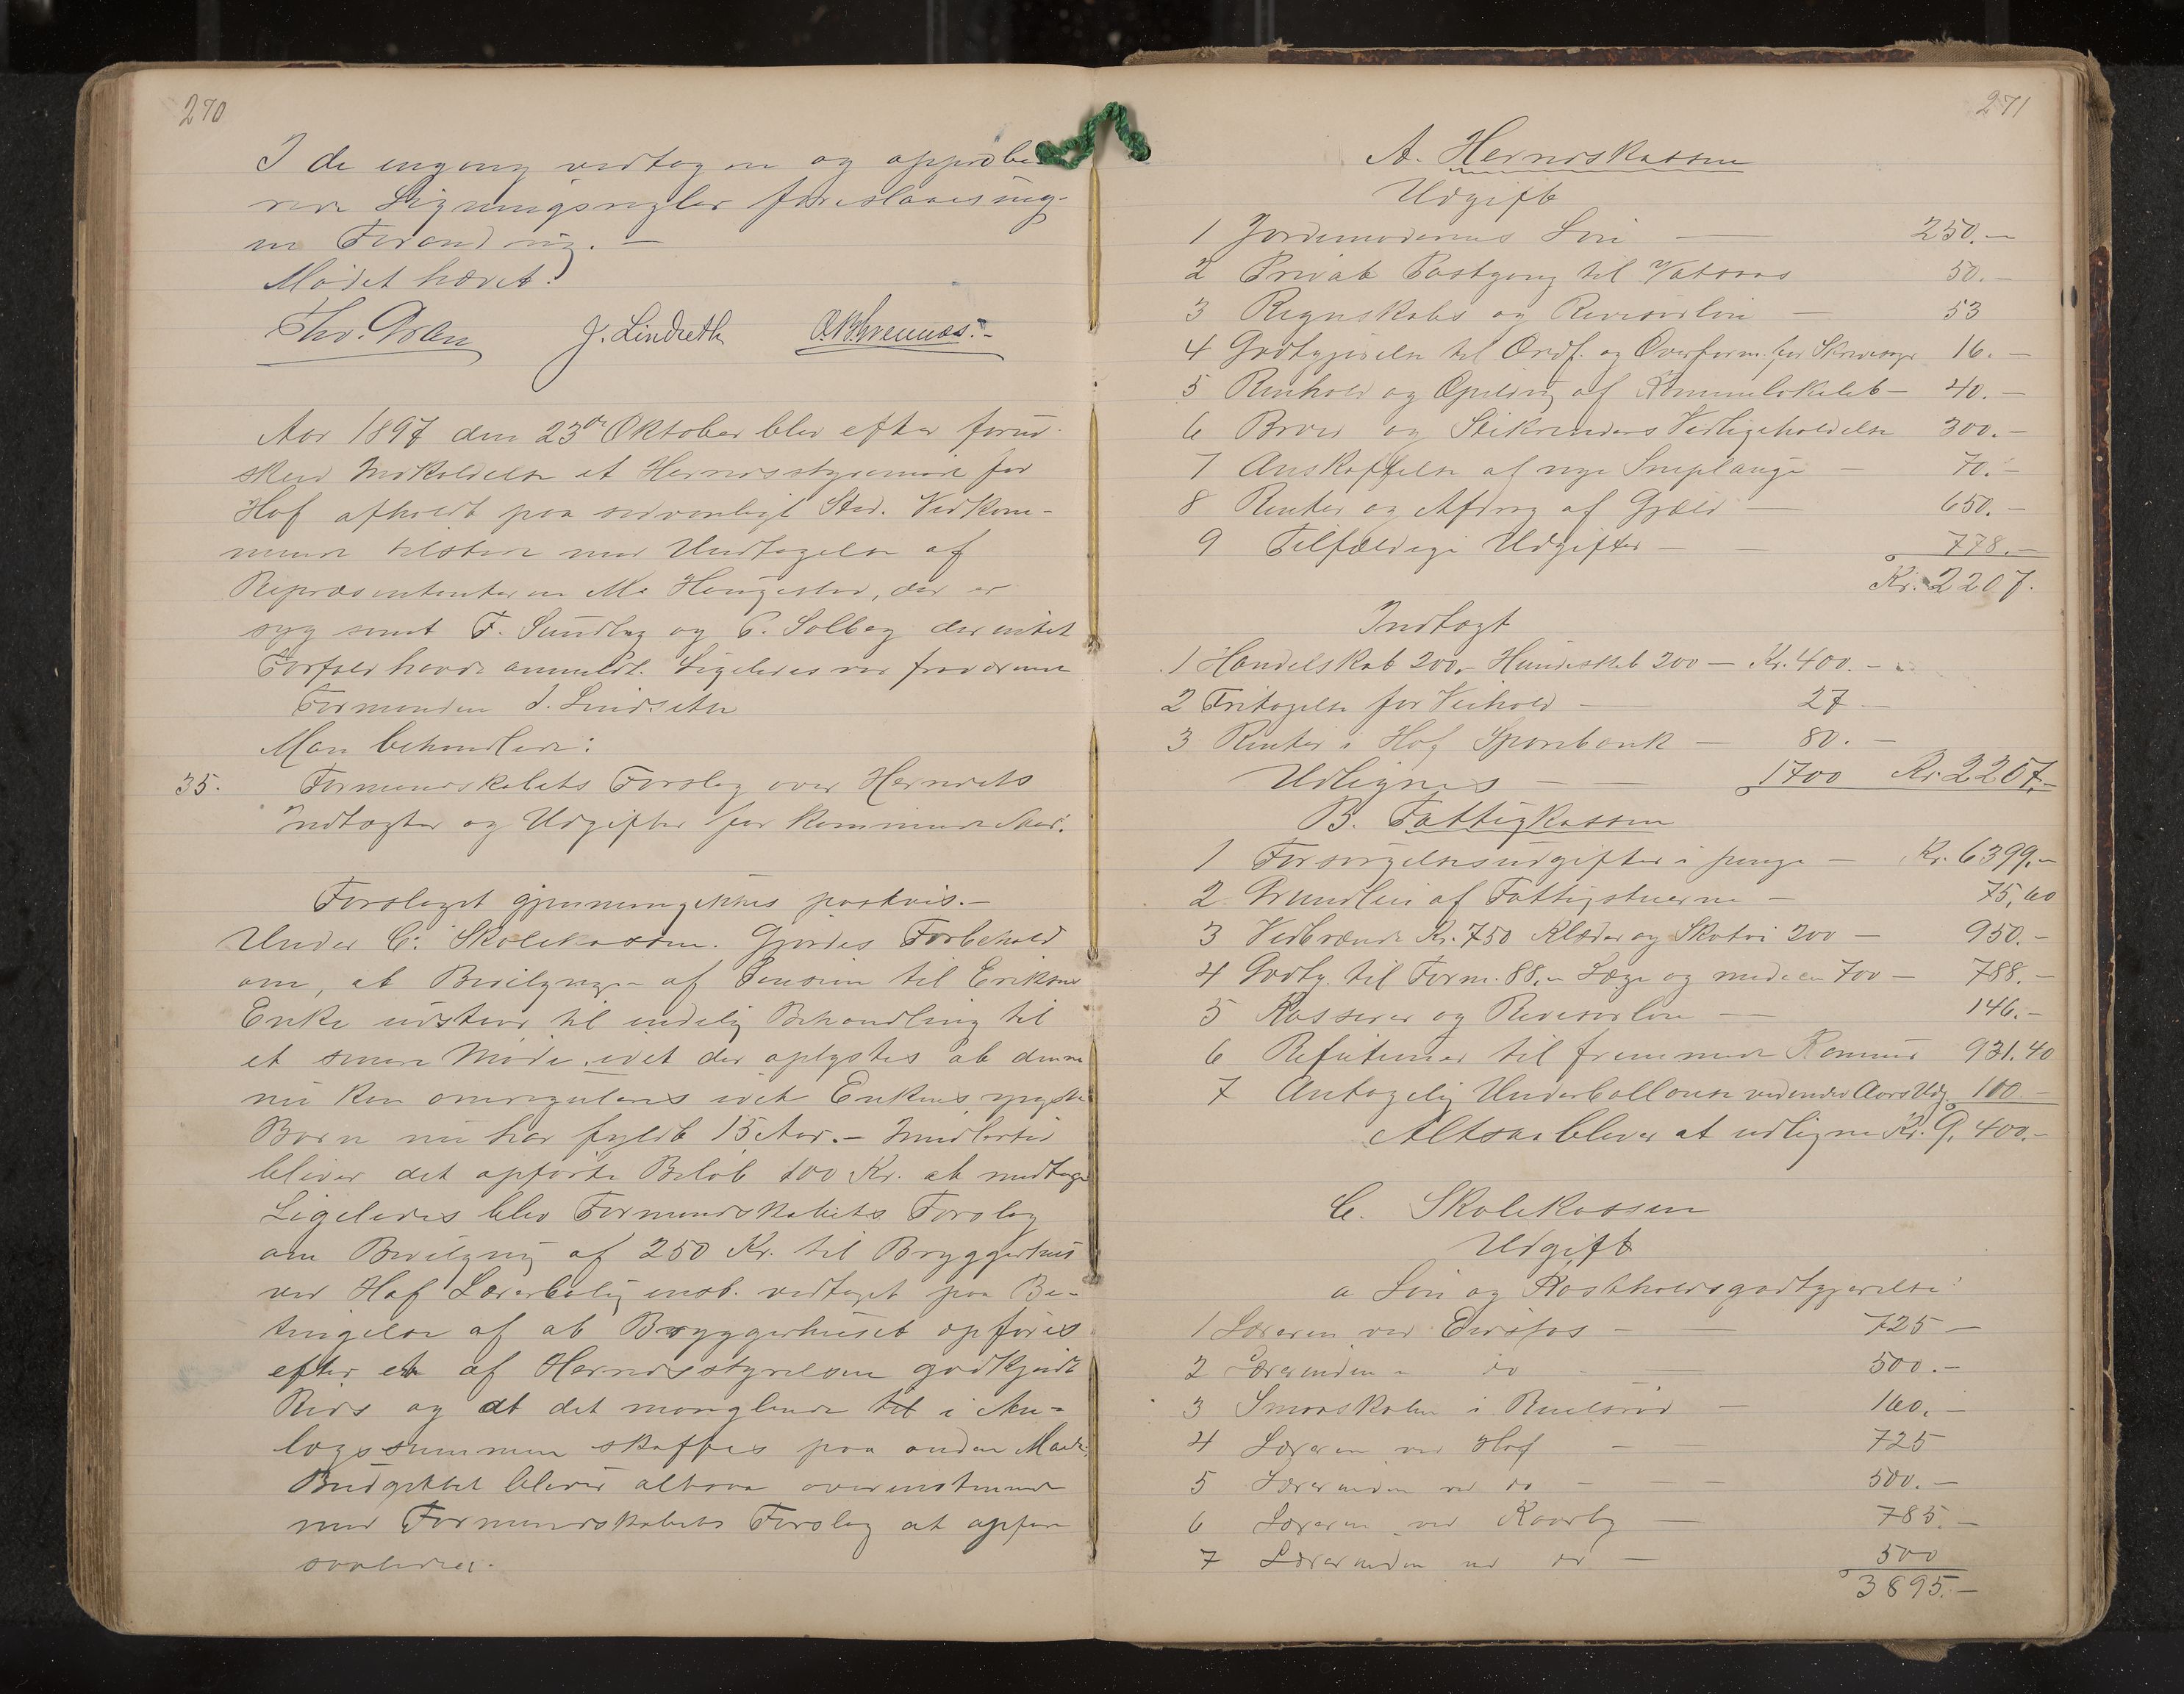 270
I de engang vedtagne og approbe-
rede Ligningsregler foreslaaes ing-
en Forandring. —
Mødet hævet.
Thv. Dræn J. Lindseth
Aar 1897 den 23de Oktober blev efter forud-
skeed Indkaldelse et Herredsstyremøde for
Hof afholdt paa sedvanligt Sted. Vedkom-
mende tilstede med Undtagelse af
Repræsentanterne Ma Haugestad, der er
syg samt F. Sundby og P. Solberg der intet
Forfald havde anmeldt. Ligeledes var fraværende
Formanden J. Lindseth
Man behandlede:
35. Formandskabets Forslag over Herredets
Indtægter og Udgifter for kommende Aar.
Forslaget gjennemgikkes postvis. —
Under C: Skolekassen. Gjordes Forbehold
om, at Bevilgningen af Pension til Eriksens
Enke udstaar til endelig Behandling til
et senere Møde, idet der oplystes at denne
nu kan omreguleres idet Enkens yngste
Barn nu har fyldt 15 Aar. — Imidlertid
bliver det opførte Beløb 100 Kr. at medtage
Ligeledes blev Formandskabets Forslag
om Bevilgning af 250 Kr. til Bryggerhus
ved Hof Lærerbolig enst. vedtaget paa Be-
tingelse af at Bryggerhuset opføres
efter et af Herredsstyrelsen godkjendt
Rids og at det manglende til i An-
lægssummen skaffes paa anden Maade.
Budgettet bliver altsaa overenstemmende
med Formandskabets Forslag at opføre
saaledes.
271
A. Herredskassen
Udgift
1 Jordemodernes Løn — 250. —
2 Privat Postgang til Vatsaas 50. —
3 Regnskabs og Revisorløn — 53
4 Godtgjørelse til Ordf. og Overform. for Skrivesager 16. —
5 Renhold og Opildning af Komunelokalet — 40. —
6 Broer og Stikrenders Vedligeholdelse 300. —
7 Anskaffelse af nye Sneplauge — 70. —
8 Renter og Afdrag af Gjæld — 650. —
9 Tilfældige Udgifter — 778. —
Kr. 2207.
Indtægt
1 Handelskat 200, — Hundeskat 200 — Kr. 400. —
2 Fritagelse for Veihold — 27 —
3 Renter i Hof Sparebank — 80. —
Udlignes — 1700 Kr. 2207. —
B. Fattigkassen
1 Forsørgelsesudgifter i penge — Kr. 6399. —
2. Grundleie af Fattigstuerne — 75,60
3 Vedbrænde Kr. 750 Klæder og Skotøi 200 — 950. —
4 Godtg. til Form. 88, — Læge og medicin 700 — 788. —
5 Kasserer og Revisorløn — 146. —
6 Refusioner til fremmede Komuner 931.40
7 Antagelig Underballance ved endende Aars Udg. 100. —
Altsaa bliver at udligne Kr. 9,400. —
C. Skolekassen
Udgift
a Løn og Kostholdsgodtgjørelse:
1 Læreren ved Eidsfos — 725 —
2 Lærerinden " do 500. —
3 Smaaskolen i Ruelsrød — 160. —
4 Læreren ved Hof — 725
5 Lærerinden ved do — 500. —
6 Læreren ved Kaarby — 785. —
7 Lærerinden ved do — 500
3895. —